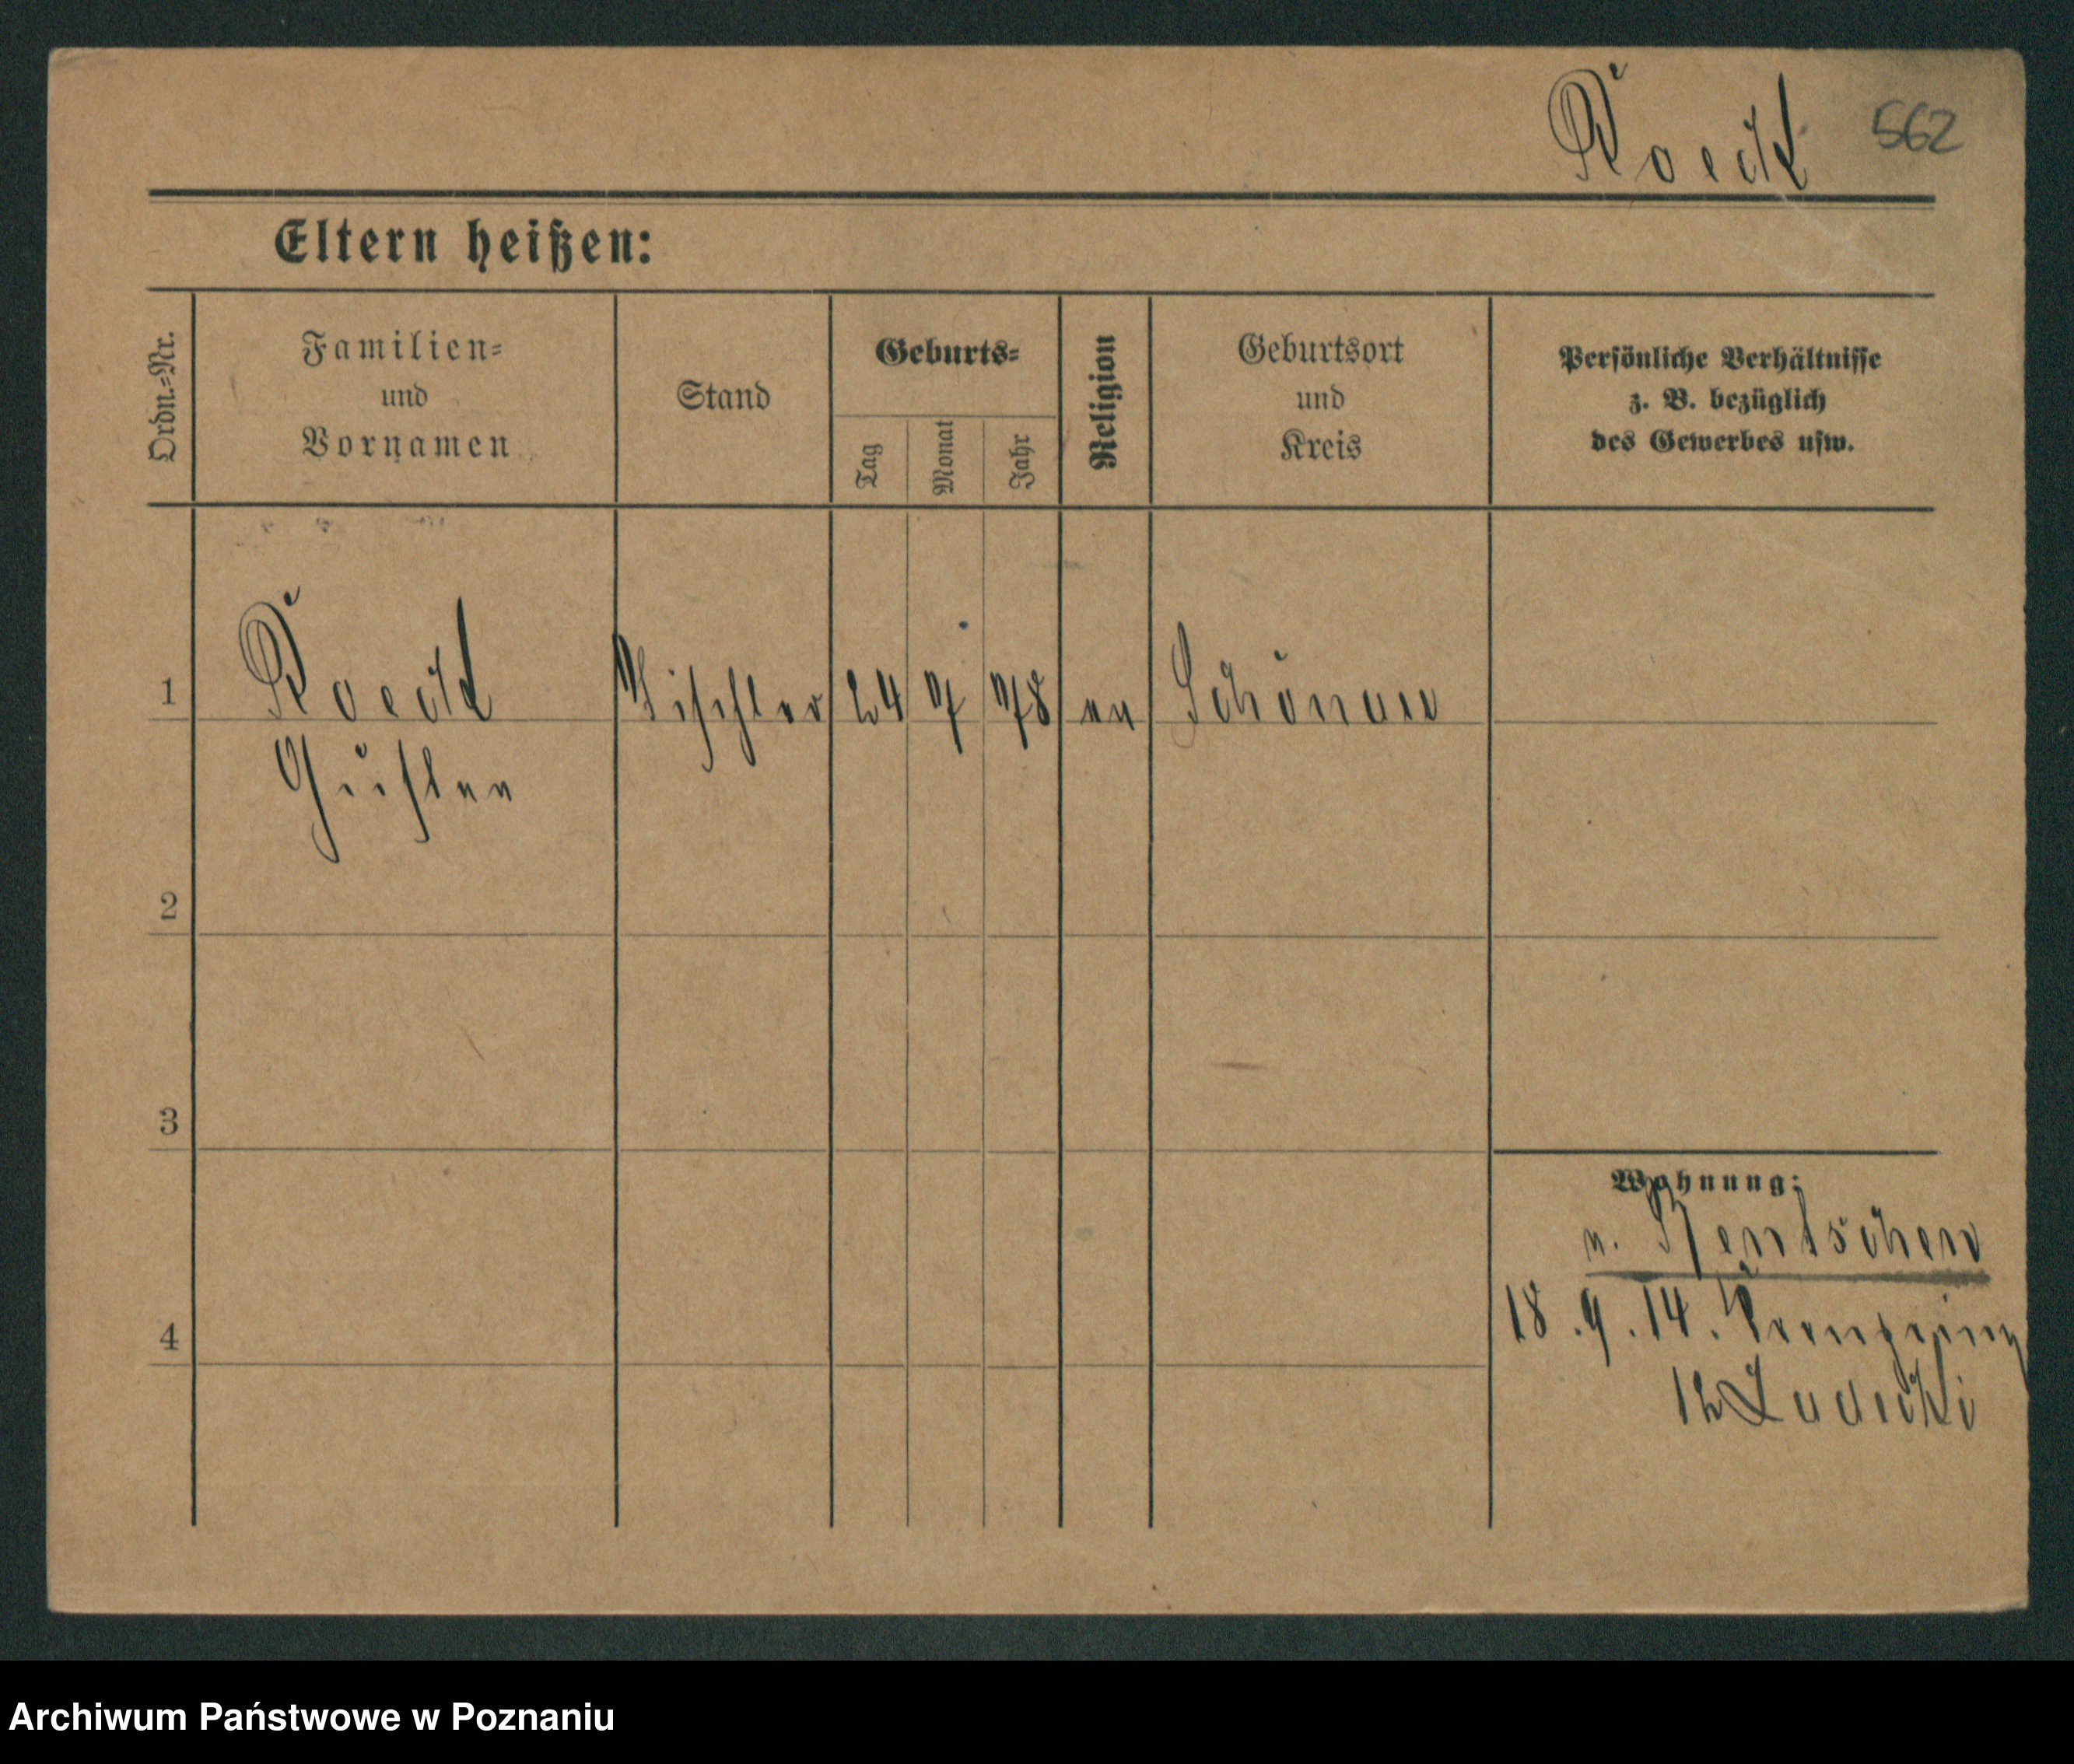 Roeckl 562
Eltern heißen:
Ordn.=Nr.
Familien=
und
Vornamen
Stand
Geburts=
Tag
Monat
Jahr
Religion
Geburtsort
und
Kreis
Persönliche Verhältnisse
z. B. bezüglich
des Gewerbes usw.
1 Tischler 24 7 78 Schönau
2
3
4
Wohnung:
n. Bentschen
18.9.14.
12